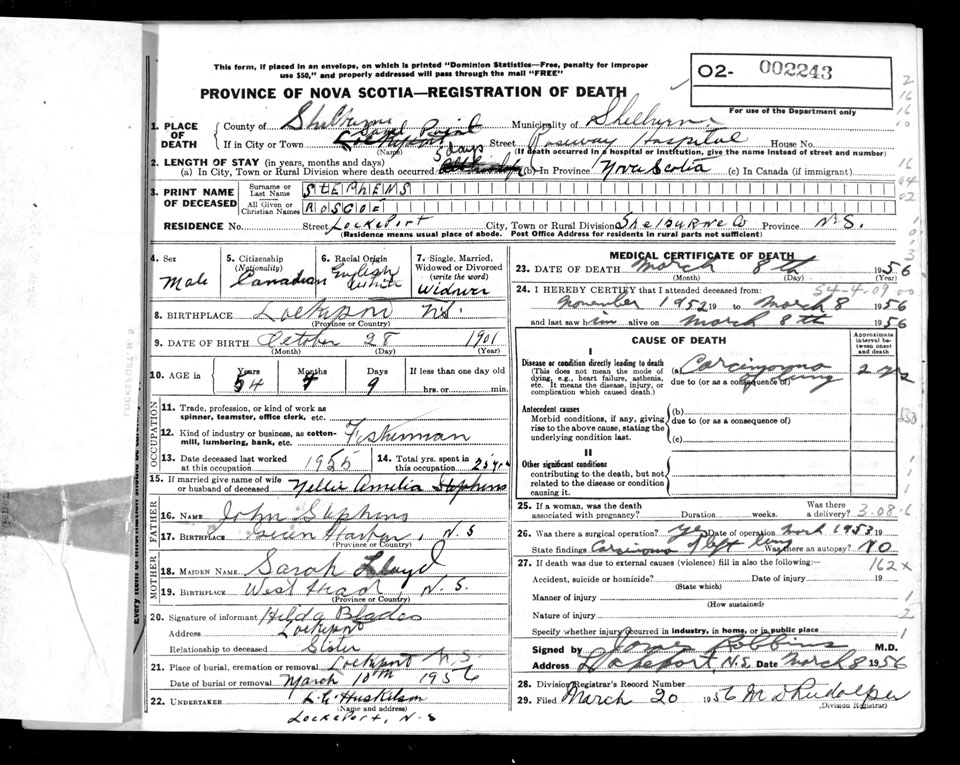 This form, if placed in an envelope, on which is printed "Dominion Statistics—Free, penalty for improper
use $50," and properly addressed will pass through the mail "FREE"
O2- 002243
For use of the Department only
PROVINCE OF NOVA SCOTIA—REGISTRATION OF DEATH
1. PLACE OF DEATH
County of Shelburne Municipality of Shelburne
If in City or Town Sand Point Lockeport (Name) Street Roseway Hospital House No.
(If death occurred in a hospital or institution, give the name instead of street and number)
2. LENGTH OF STAY (in years, months and days)
(a) In City, Town or Rural Division where death occurred 5 days (b) In Province Nova Scotia (c) In Canada (if immigrant)
3. PRINT NAME OF DECEASED
Surname or Last Name STEPHENS
All Given or Christian Names ROSCOE
RESIDENCE No. Street Lockeport City, Town or Rural Division Shelburne Co Province N.S.
(Residence means usual place of abode. Post Office Address for residents in rural parts not sufficient)
4. Sex Male
5. Citizenship (Nationality) Canadian
6. Racial Origin English White
7. Single, Married, Widowed or Divorced (write the word) Widower
8. BIRTHPLACE Lockeport N.S.
(Province or Country)
9. DATE OF BIRTH October 28 1901
(Month) (Day) (Year)
10. AGE in Years 54 Months 4 Days 9 If less than one day old hrs. or min.
OCCUPATION
11. Trade, profession, or kind of work as spinner, teamster, office clerk, etc.
12. Kind of industry or business, as cotton-mill, lumbering, bank, etc. Fisherman
13. Date deceased last worked at this occupation 1955
14. Total yrs. spent in this occupation 25 yrs
15. If married give name of wife or husband of deceased Nellie Amelia Stephens
FATHER
16. NAME John Stephens
17. BIRTHPLACE Green Harbor, N.S
(Province or Country)
MOTHER
18. MAIDEN NAME Sarah Lloyd
19. BIRTHPLACE West Head, N.S.
(Province or Country)
20. Signature of informant Hilda Blades
Address Lockeport
Relationship to deceased Sister
21. Place of burial, cremation or removal Lockeport N.S
Date of burial or removal March 10th 1956
22. UNDERTAKER L. C. Huskilson
(Name and address)
Lockeport, N-S
MEDICAL CERTIFICATE OF DEATH
23. DATE OF DEATH March 8th 1956
(Month) (Day) (Year)
54-4-09 00
24. I HEREBY CERTIFY that I attended deceased from
November 1952 19 to March 8 1956
and last saw him alive on March 8th 1956
CAUSE OF DEATH
Approximate interval between onset and death
I
Disease or condition directly leading to death
(This does not mean the mode of dying, e.g., heart failure, asthenia, etc. It means the disease, injury, or complication which caused death.)
(a) Carcinoma of lung 2 yrs
due to (or as a consequence of)
Antecedent causes
Morbid conditions, if any, giving rise to the above cause, stating the underlying condition last.
(b)
due to (or as a consequence of)
(c)
II
Other significant conditions
contributing to the death, but not related to the disease or condition causing it.
25. If a woman, was the death associated with pregnancy? Duration weeks. Was there a delivery? 3-08-6
26. Was there a surgical operation? Yes Date of operation 1953 19
State findings Carcinoma of left lung Was there an autopsy? No
27. If death was due to external causes (violence) fill in also the following:— 162x
Accident, suicide or homicide? Date of injury 19
(State which)
Manner of injury
(How sustained)
Nature of injury
Specify whether injury occurred in industry, in home, or in public place
Signed by Robbins M.D.
Address Lockeport N.S. Date March 8 1956
28. Division Registrar's Record Number
29. Filed March 20 1956
(Division Registrar)